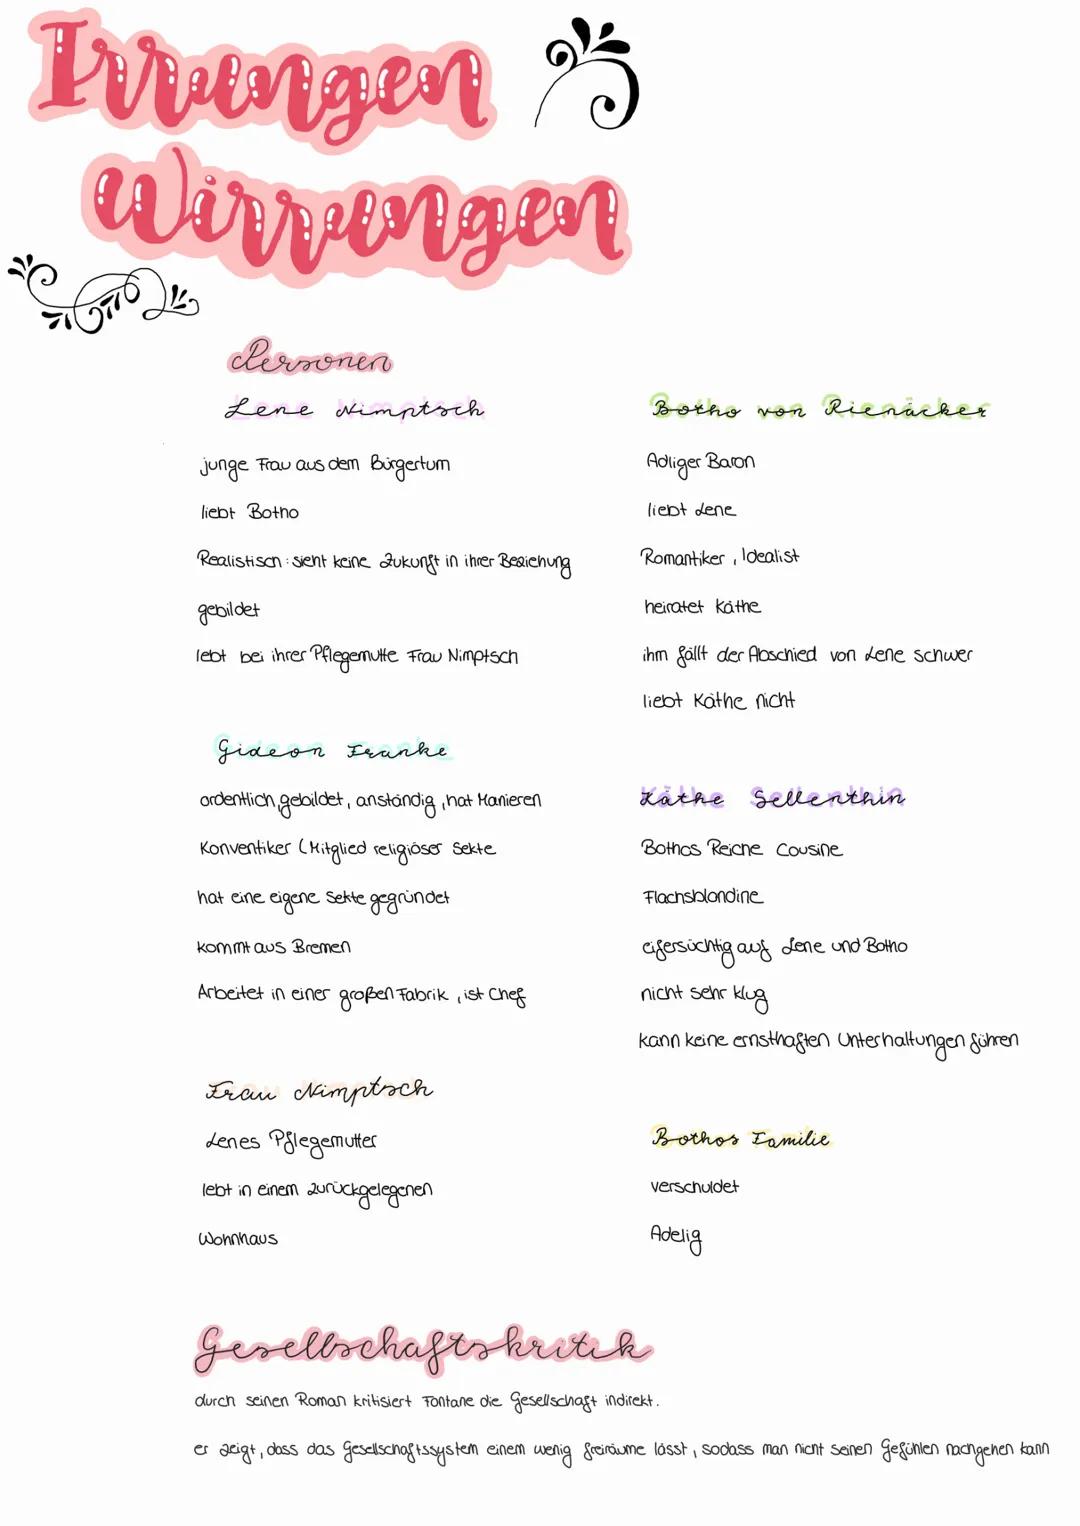 Irrungen
Wirrungen
Personen
Lene Nimptsch
junge Frau aus dem Bürgertum
liebt Botho
Realistisch: sieht keine Zukunft in ihrer Beziehung
gebildet
lebt bei ihrer Pflegemutte Frau Nimptsch
Botho von Rienäcker
Adliger Baron
liebt Lene
Romantiker, Idealist
heiratet Käthe
ihm fällt der Abschied von Lene schwer
liebt Käthe nicht
Gideon Franke
ordentlich, gebildet, anständig, hat Manieren
Konventiker (Mitglied religiöser Sekte
hat eine eigene Sekte gegründet
kommt aus Bremen
Arbeitet in einer großen Fabrik, ist Chef
Käthe Sellenthin
Bothos Reiche Cousine
Flachsblondine
eifersüchtig auf Lene und Botho
nicht sehr klug
kann keine ernsthaften Unterhaltungen führen
Frau Nimptsch
Lenes Pflegemutter
lebt in einem zurückgelegenen
Wohnhaus
Bothos Familie
verschuldet
Adelig
Gesellschaftskritik
durch seinen Roman kritisiert Fontane die Gesellschaft indirekt.
er zeigt, dass das Gesellschaftssystem einem wenig freiräume lässt, sodass man nicht seinen Gefühlen nachgehen kann